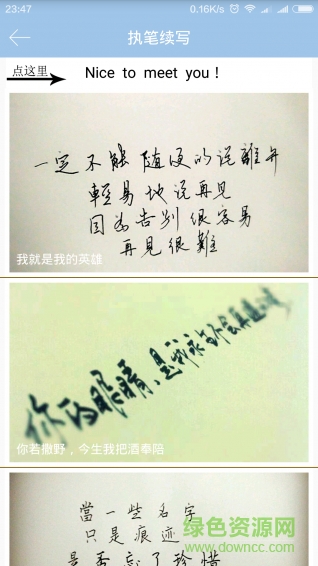 23:47
0.16K/s
执笔续写
点这里
Nice to meet you！
一定不能随便的说離开
輕易地说再见
因为告别很容易
再見很難
我就是我的英雄
你的眼睛,是我永
你若撒野，今生我把酒奉陪
當一些名字
只是痕迹
是否忘了珍惜
绿色资源网
www.downcc.com